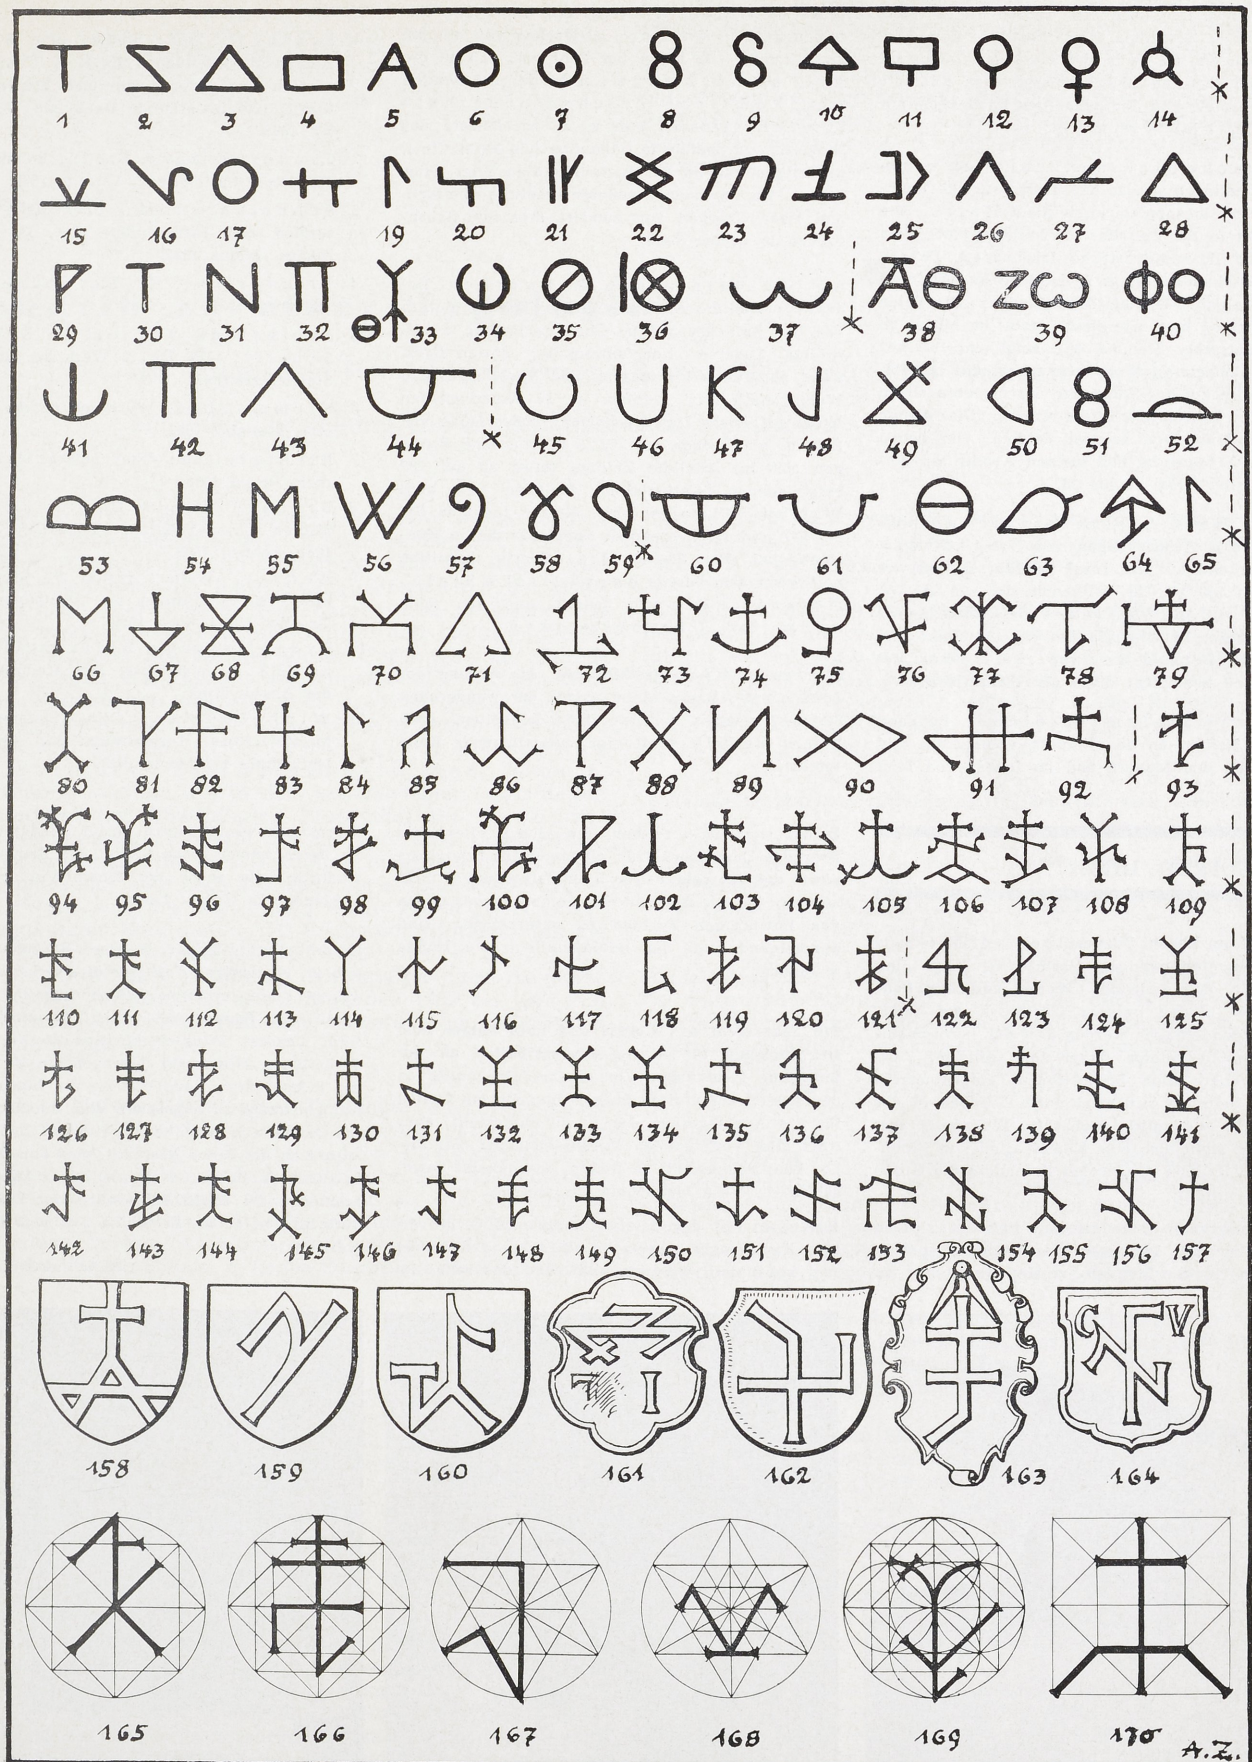 1 2 3 4 5 6 7 8 9 10 11 12 13 14
15 16 17 19 20 21 22 23 24 25 26 27 28
29 30 31 32 33 34 35 36 37 38 39 40
41 42 43 44 45 46 47 48 49 50 51 52
53 54 55 56 57 58 59 60 61 62 63 64 65
66 67 68 69 70 71 72 73 74 75 76 77 78 79
80 81 82 83 84 85 86 87 88 89 90 91 92 93
94 95 96 97 98 99 100 101 102 103 104 105 106 107 108 109
110 111 112 113 114 115 116 117 118 119 120 121 122 123 124 125
126 127 128 129 130 131 132 133 134 135 136 137 138 139 140 141
142 143 144 145 146 147 148 149 150 151 152 153 154 155 156 157
C V
158 159 160 161 162 163 164
165 166 167 168 169 170
A.Z.